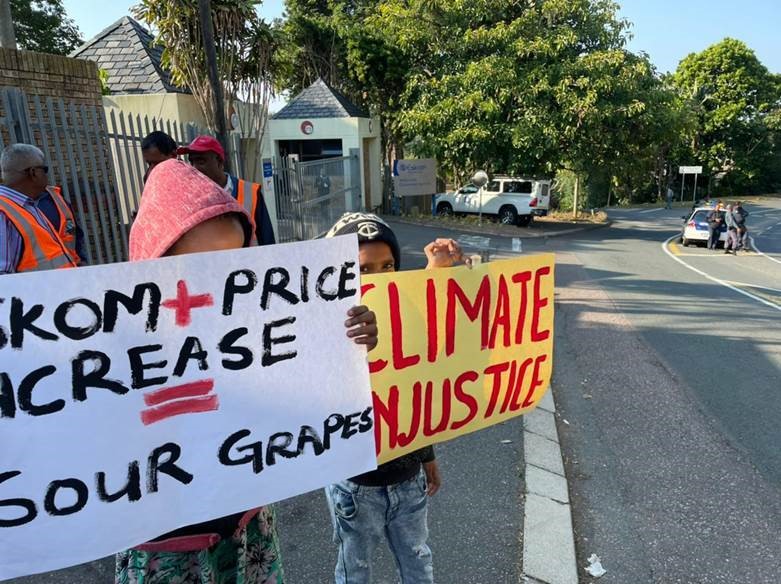 SKOM + PRICE
NCREASE
=
SOUR GRAPES
CLIMATE
INJUSTICE
Eskom